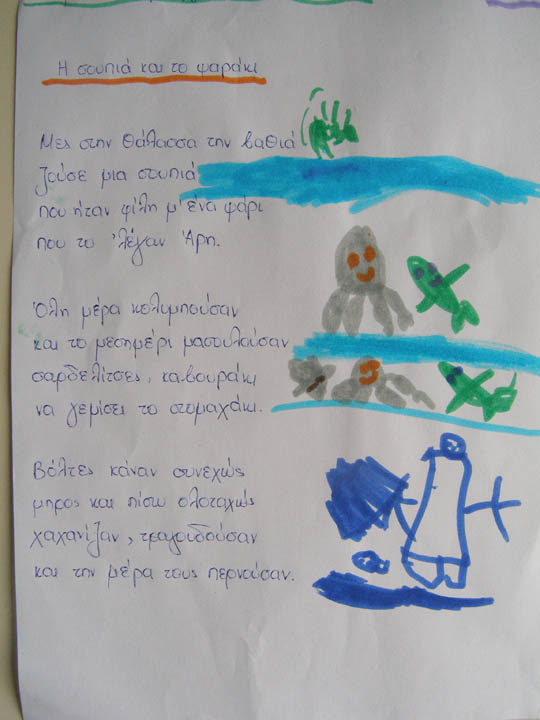 Η σουπιά και το ψαράκι
Μες στην θάλασσα την βαθιά
ζούσε μια σουπιά
που ήταν φίλη μ' ένα ψάρι
που το 'λέγαν Άρη.
Όλη μέρα κολυμπούσαν
και το μεσημέρι μασουλούσαν
σαρδελίτσες, καβουράκι
να γεμίσει το στομαχάκι.
Βόλτες κάναν συνεχώς
μπρος και πίσω ολοταχώς
χαχανίζαν, τραγουδούσαν
και την μέρα τους περνούσαν.